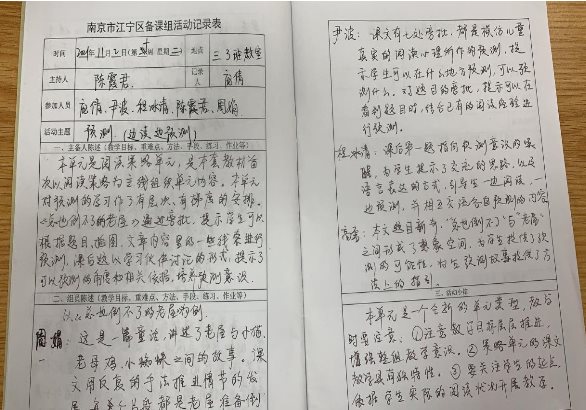 南京市江宁区备课组活动记录表
时间
年11月2日(第 周 星期二)
地点
三3班教室
主持人
陈霞君
记录人
高倩
参加人员
高倩、尹波、程冰清、陈霞君、周娟
活动主题
预测(边读边预测)
一、主备人陈述(教学目标、重难点、方法、手段、练习、作业等)
本单元是阅读策略单元,是本套教材首
次以阅读策略为主线组织单元内容。本单元
对预测的学习作了有层次、有梯度的安排。
《总也倒不了的老屋》通过旁批,提示学生可以
根据题目、插图、文章内容里的一些线索进行
预测,课后题以学习伙伴讨论的形式,提示了
可以预测的角度和相关依据,培养预测意识。
二、组员陈述(教学目标、重难点、方法、手段、练习、作业等)
以《总也倒不了的老屋》为例
周娟:这是一篇童话,讲述了老屋与小猫、
老母鸡、小蜘蛛之间的故事。课
文用反复的手法推进情节的发
展,每个片段都是老屋准备倒
尹波:课文有七处旁批,都是模仿儿童
真实的阅读心理所作的预测,提
示学生可以在什么地方预测,可以预
测什么。对题目的旁批,提示可以在
看到题目时,结合已有的阅读经验进
行预测。
程冰清:课后第一题指向预测意识的唤
醒,为学生提示了交流的思路,以这
语言表达的方式,引导学生一边阅读,一
边预测,并相互交流各自预测的内容
高倩:本文题目新奇,“总也倒不了”与“老屋”
之间形成了想象空间,为学生提供了预
测的可能性,对学生预测故事提供了方
法上的指引。
三、活动小结
本单元是一个全新的单元类型,教学
时要注意:①注意教学目标层层推进,
增强整组教学意识。②策略单元的课文
教学具有独特性。③要关注学生的起点,
依据学生实际的阅读状况开展教学。